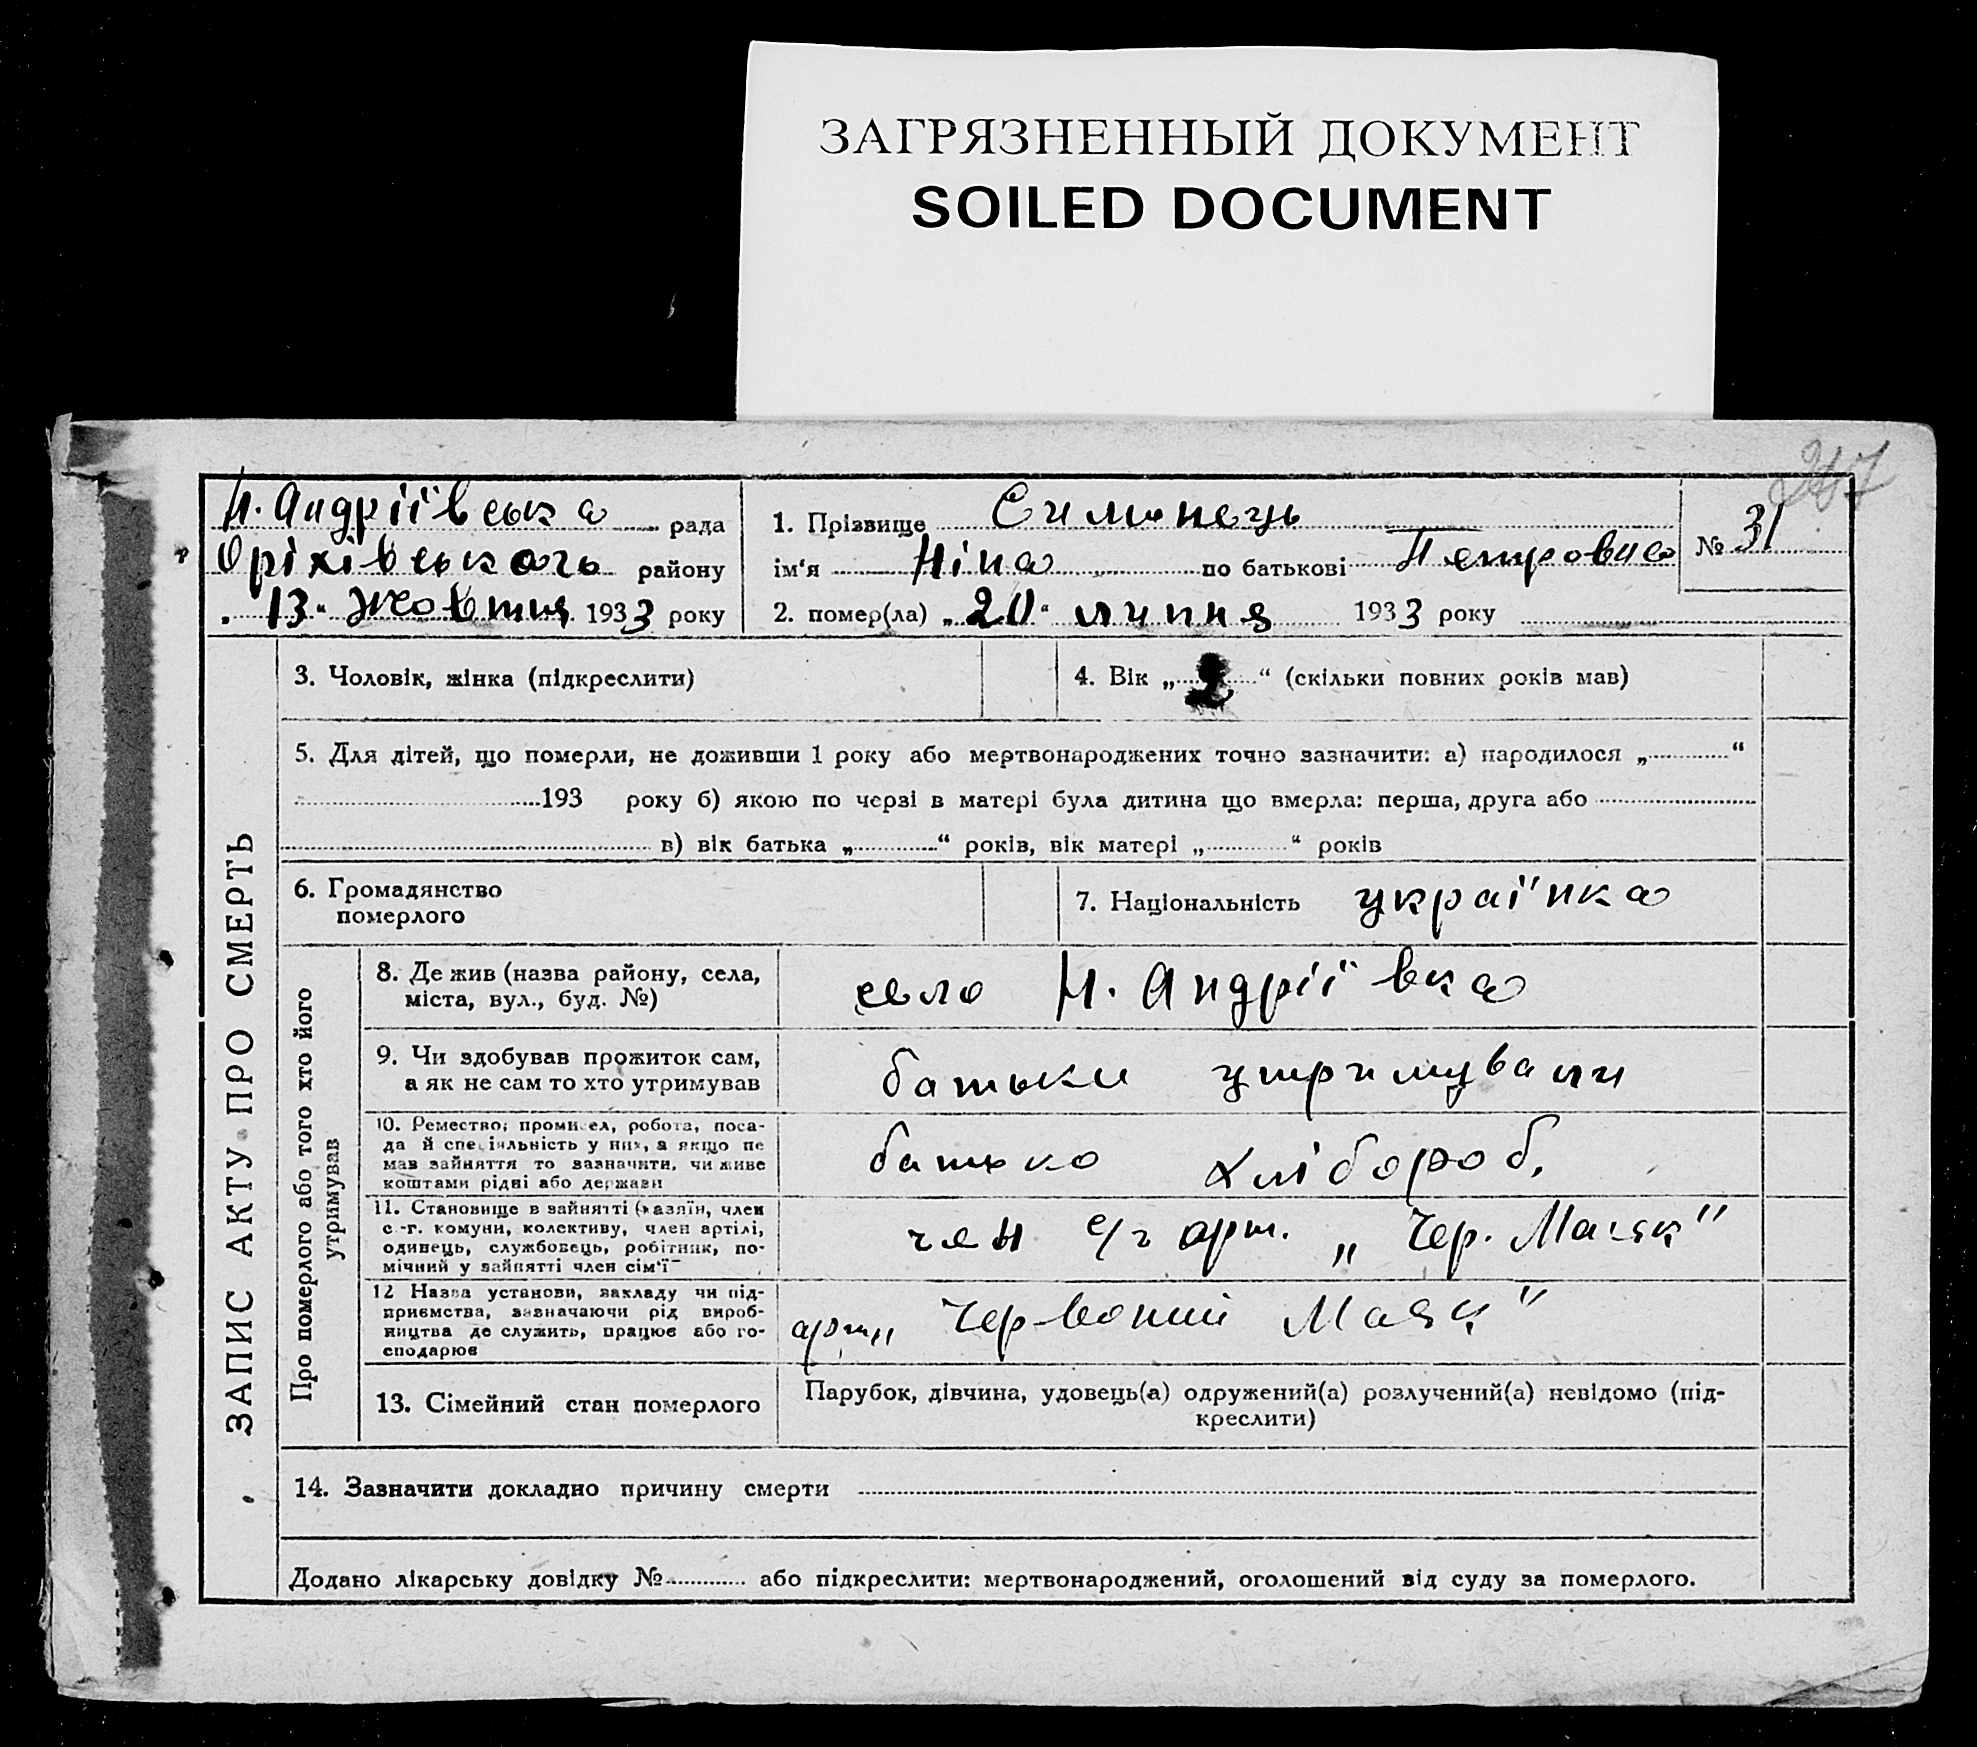 ЗАГРЯЗНЕННЫЙ ДОКУМЕНТ
SOILED DOCUMENT
Н. Андріївська рада
Оріхівського району
„13“ жовтня 1933 року
1. Прізвище Симонець
ім'я Ніна по батькові Петровна
2. помер(ла) „20“ липня 1933 року
№ 31
ЗАПИС АКТУ ПРО СМЕРТЬ
3. Чоловік, жінка (підкреслити)
4. Вік „2“ (скільки повних років мав)
5. Для дітей, що померли, не доживши 1 року або мертвонароджених точно зазначити: а) народилося „ “
193 року б) якою по черзі в матері була дитина що вмерла: перша, друга або
в) вік батька „ “ років, вік матері „ “ років
6. Громадянство
померлого
7. Національність українка
Про померлого або того хто його
утримував
8. Де жив (назва району, села,
міста, вул., буд. №)
село Н. Андріївка
9. Чи здобував прожиток сам,
а як не сам то хто утримував
батьки утримували
10. Ремество, промисел, робота, поса-
да й спеціяльність у них, а якщо не
мав зайняття то зазначити, чи живе
коштами рідні або держави
батько хлібороб,
11. Становище в зайнятті (хазяїн, член
с.-г. комуни, колективу, член артілі,
одинець, службовець, робітник, по-
мічний у зайнятті член сім'ї
член с/г арт. „Чер. Маяк"
12 Назва установи, закладу чи під-
приємства, зазначаючи рід вироб-
ництва де служить, працює або го-
сподарює
арт „Червоний Маяк"
13. Сімейний стан померлого
Парубок, дівчина, удовець(а) одружений(а) розлучений(а) невідомо (під-
креслити)
14. Зазначити докладно причину смерти
Додано лікарську довідку № або підкреслити: мертвонароджений, оголошений від суду за померлого.